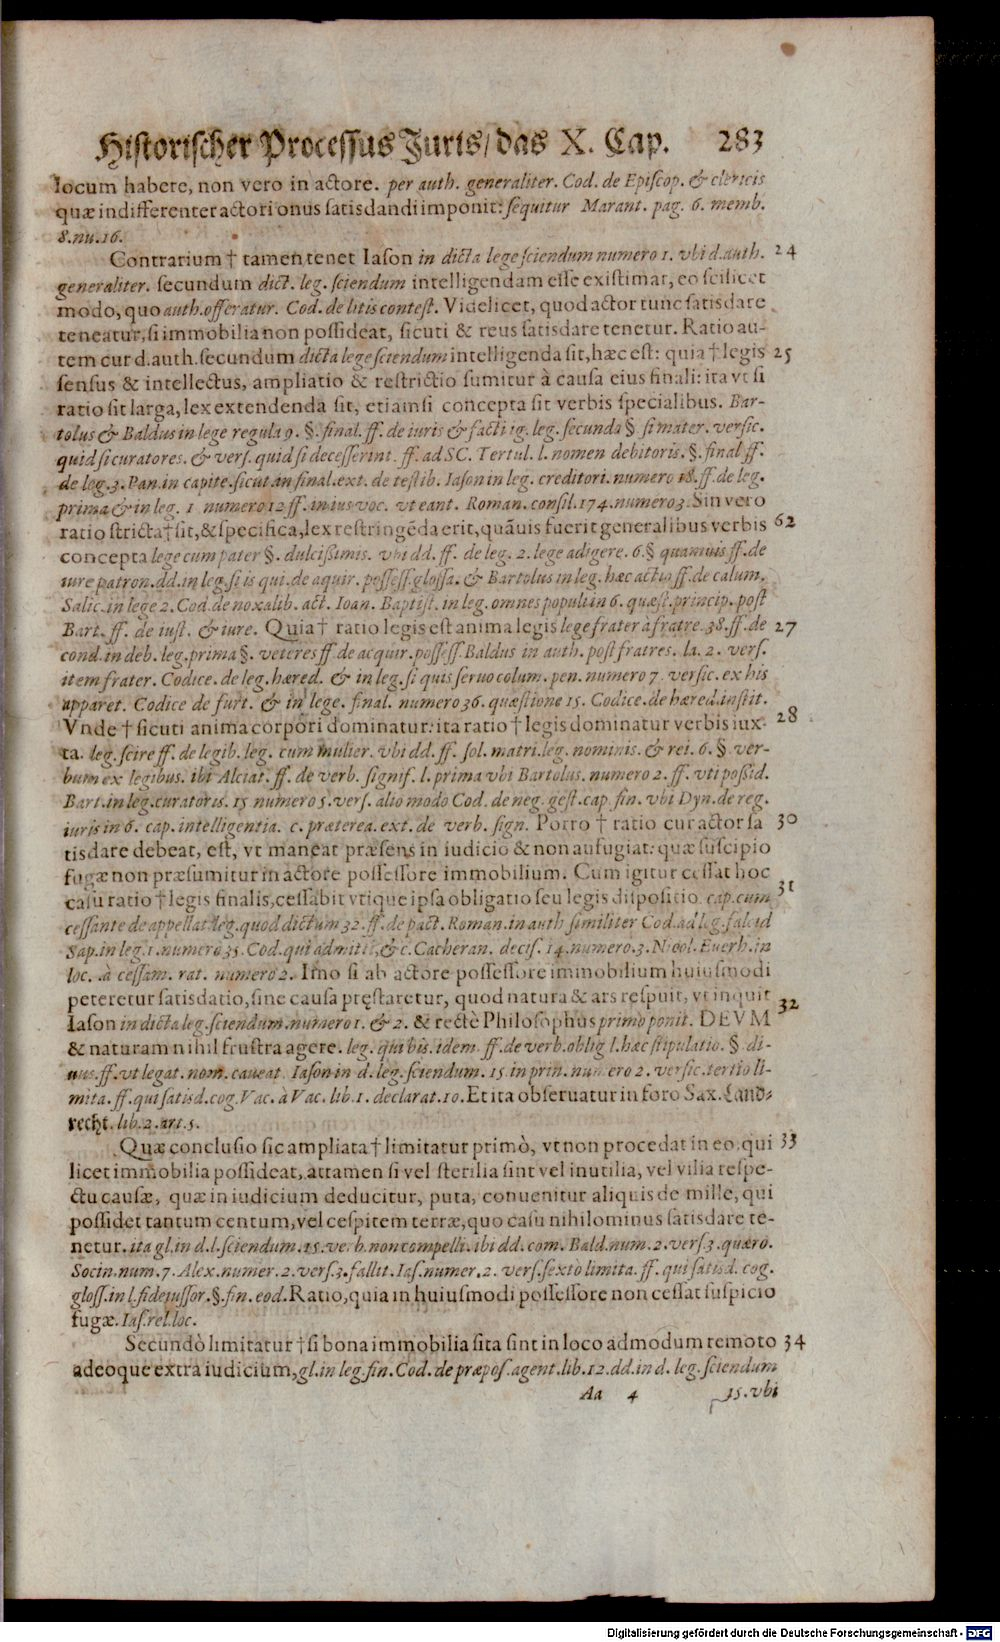 Historischer Processus Juris/ das X. Cap. 283
locum habere, non vero in actore. per auth. generaliter. Cod. de Episcop. & clericis
quæ indifferenter actori onus satisdandi imponit: sequitur Marant. pag. 6. memb.
8. nu. 16.
Contrarium † tamen tenet Iason in dicta lege sciendum numero 1. vbi d. auth. 24
generaliter. secundum dict. leg. sciendum intelligendam esse existimat, eo scilicet
modo, quo auth. offeratur. Cod. de litis contest. Videlicet, quod actor tunc satisdare
teneatur, si immobilia non possideat, sicuti & reus satisdare tenetur. Ratio au-
tem cur d. auth. secundum dicta lege sciendum intelligenda sit, hæc est: quia † legis 25
sensus & intellectus, ampliatio & restrictio sumitur à causa eius finali: ita vt si
ratio sit larga, lex extendenda sit, etiamsi concepta sit verbis specialibus. Bar-
tolus & Baldus in lege regula 9. §. final. ff. de iuris & facti ig. leg. secunda § si mater. versic.
quid si curatores. & vers. quid si decesserint. ff. ad SC. Tertul. l. nomen debitoris. §. final ff.
de leg. 3. Pan. in capite. sicut an final. ext. de testib. Iason in leg. creditori. numero 18. ff. de leg.
prima & in leg. 1 numero 12 ff. in ius voc. vt eant. Roman. consil. 174. numero 3. Sin vero
ratio stricta † sit, & specifica, lex restringēda erit, quāuis fuerit generalibus verbis 62
concepta lege cum pater §. dulcißimis. vbi dd. ff. de leg. 2. lege adigere. 6. § quamuis ff. de
iure patron. dd. in leg. si is qui. de aquir. possess. glossa. & Bartolus in leg. hæc actio ff. de calum.
Salic. in lege 2. Cod. de noxalib. act. Ioan. Baptist. in leg. omnes populi n 6. quæst. princip. post
Bart. ff. de iust. & iure. Quia † ratio legis est anima legis lege frater à fratre. 38. ff. de 27
cond. in deb. leg. prima §. veteres ff. de acquir. possess. Baldus in auth. post fratres. la. 2. vers.
item frater. Codice. de leg. hæred. & in leg. si quis seruo colum. pen. numero 7. versic. ex his
apparet. Codice de furt. & in lege. final. numero 36. quæstione 15. Codice. de hæred. instit.
Vnde † sicuti anima corpori dominatur: ita ratio † legis dominatur verbis iux- 28
ta. leg. scire ff. de legib. leg. cum mulier. vbi dd. ff. sol. matri. leg. nominis. & rei. 6. § ver-
bum ex legibus. ibi Alciat. ff. de verb. signif. l. prima vbi Bartolus. numero 2. ff. vti poßid.
Bart. in leg. curatoris. 15 numero 5. vers. alio modo Cod. de neg. gest. cap. fin. vbi Dyn. de reg.
iuris in 6. cap. intelligentia. c. præterea. ext. de verb. sign. Porro † ratio cur actor sa 30
tisdare debeat, est, vt maneat præsens in iudicio & non aufugiat: quæ suscipio
fugæ non præsumitur in actore possessore immobilium. Cum igitur cessat hoc
casu ratio † legis finalis, cessabit vtique ipsa obligatio seu legis dispositio. cap. cum 31
cessante de appellat. leg. quod dictum 32. ff. de pact. Roman. in auth similiter Cod. ad leg. falcid
Sap. in leg. 1. numero 35. Cod. qui admitti, & c. Cacheran. decis. 14. numero. 3. Nicol. Euerh. in
loc. à cessam. rat. numero 2. Imo si ab actore possessore immobilium huiusmodi
peteretur satisdatio, sine causa pręstaretur, quod natura & ars respuit, vt inquit 32
Iason in dicta leg. sciendum. numero 1. & 2. & rectè Philosophus primo ponit. DEVM
& naturam nihil frustra agere. leg. quibus. idem. ff. de verb. oblig l. hæc stipulatio. § di-
uus. ff. vt legat. nom. caueat. Iason in d. leg. sciendum. 15. in prin. numero 2. versic. tertio li-
mita. ff. qui satisd. cog. Vac. à Vac. lib. 1. declarat. 10. Et ita obseruatur in foro Sax. Land-
recht. lib. 2. art. 5.
Quæ conclusio sic ampliata † limitatur primò, vt non procedat in eo, qui 33
licet immobilia possideat, attamen si vel sterilia sint vel inutilia, vel vilia respe-
ctu causæ, quæ in iudicium deducitur, puta, conuenitur aliquis de mille, qui
possidet tantum centum, vel cespitem terræ, quo casu nihilominus satisdare te-
netur. ita gl. in d. l. sciendum. 15. verb. non compelli. ibi dd. com. Bald. num. 2. vers. 3. quæro.
Socin. num. 7. Alex. numer. 2. vers. 3. fallit. Ias. numer. 2. vers. sexto limita. ff. qui satisd. cog.
gloss. in l. fideiussor. §. fin. eod. Ratio, quia in huiusmodi possessore non cessat suspicio
fugæ. Ias. rel. loc.
Secundò limitatur † si bona immobilia sita sint in loco admodum remoto 34
adeoque extra iudicium, gl. in leg. fin. Cod. de præpos. agent. lib. 12. dd. in d. leg. sciendum
Aa 4 15. vbi
Digitalisierung gefördert durch die Deutsche Forschungsgemeinschaft - DFG